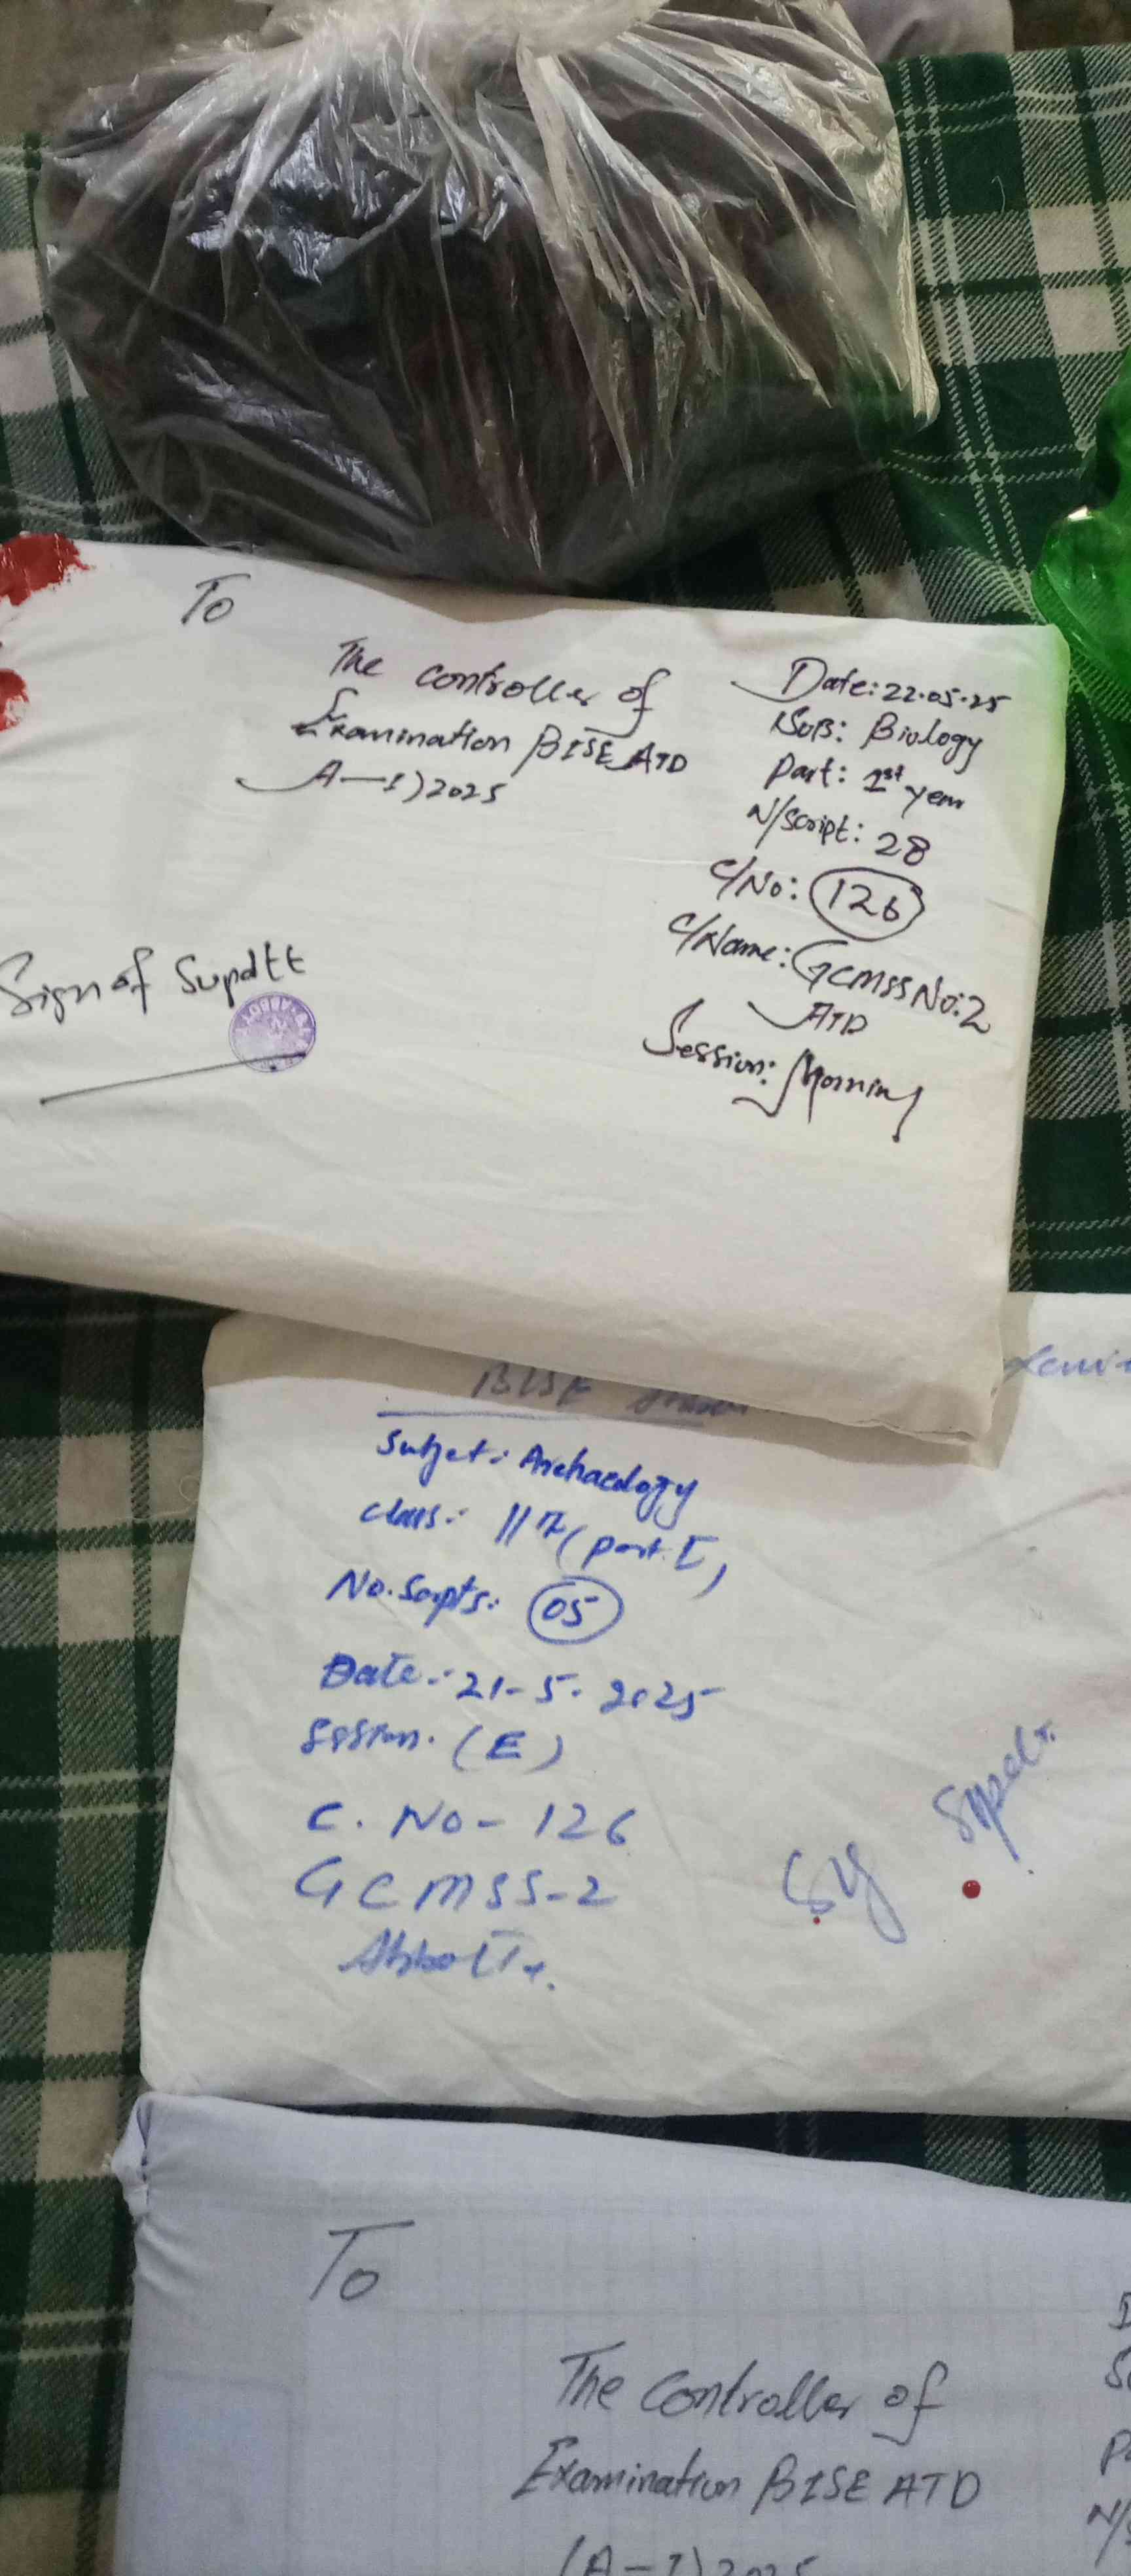 To
The controller of
Examination BISE ATD
A-I) 2025
Date: 22.05.25
SuB: Biology
Part: 1st year
N/Script: 28
C/No: 126
C/Name: GCMSS No:2
ATD
Session: Morning
Sign of Supdtt
BISE
Subjet: Archaeology
Class: 11th (part. I)
No. Scripts: 05
Date: 21-5-2025
Session. (E)
C. No- 126
GCMSS-2
Supdt.
To
The Controller of
Examination BISE ATD
(A-I) 2025